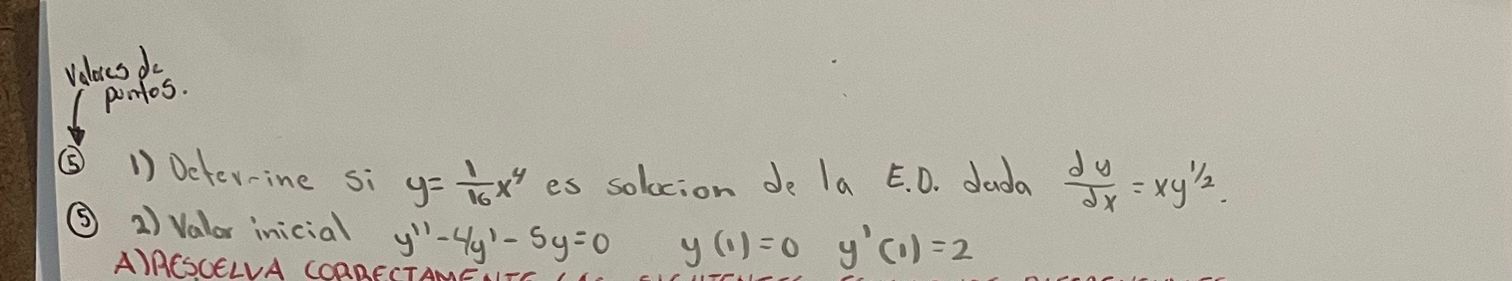 Valores de
puntos.
⑤ 1) Determine si y = 1/16 x⁴ es solucion de la E.D. dada dy/dx = xy^1/2.
⑤ 2) Valor inicial y'' - 4y' - 5y = 0 y(1) = 0 y'(1) = 2
A) RESUELVA CORRECTAMENTE LAS SIGUIENTES